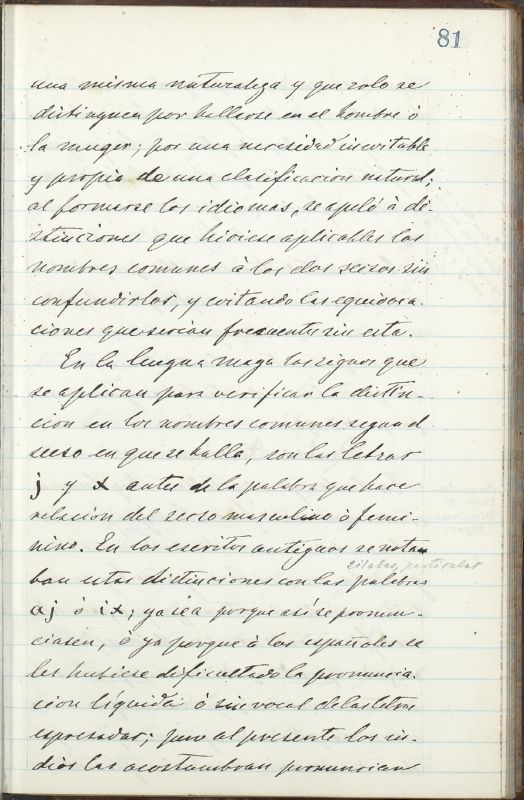 81
una misma naturaleza y que solo se
distinguen por hallarse en el hombre ó
la muger; por una necesidad inevitable
y propia de una clasificacion natural;
al formarse los idiomas, se apeló á di-
stinciones que hiciese aplicables los
nombres comunes á los dos secsos sin
confundirlos, y evitando las equivoca-
ciones que serian frecuentes sin esta.
En la lengua maya los signos que
se aplican para verificar la distin-
cion en los nombres comunes segun el
secso en que se halla, son las letras
j y x antes de la palabra que hace
relacion del secso masculino ó feme-
nino. En los escritos antiguos se nota
silabas, particulas
ban estas distinciones con las palabras
aj ó ix; ya sea porque asi se pronun-
ciasen, ó ya porque á los españoles se
les hubiese dificultado la pronuncia-
cion líquida ó sin vocal de las letras
espresadas; pero al presente los in-
dios las acostumbran pronunciar